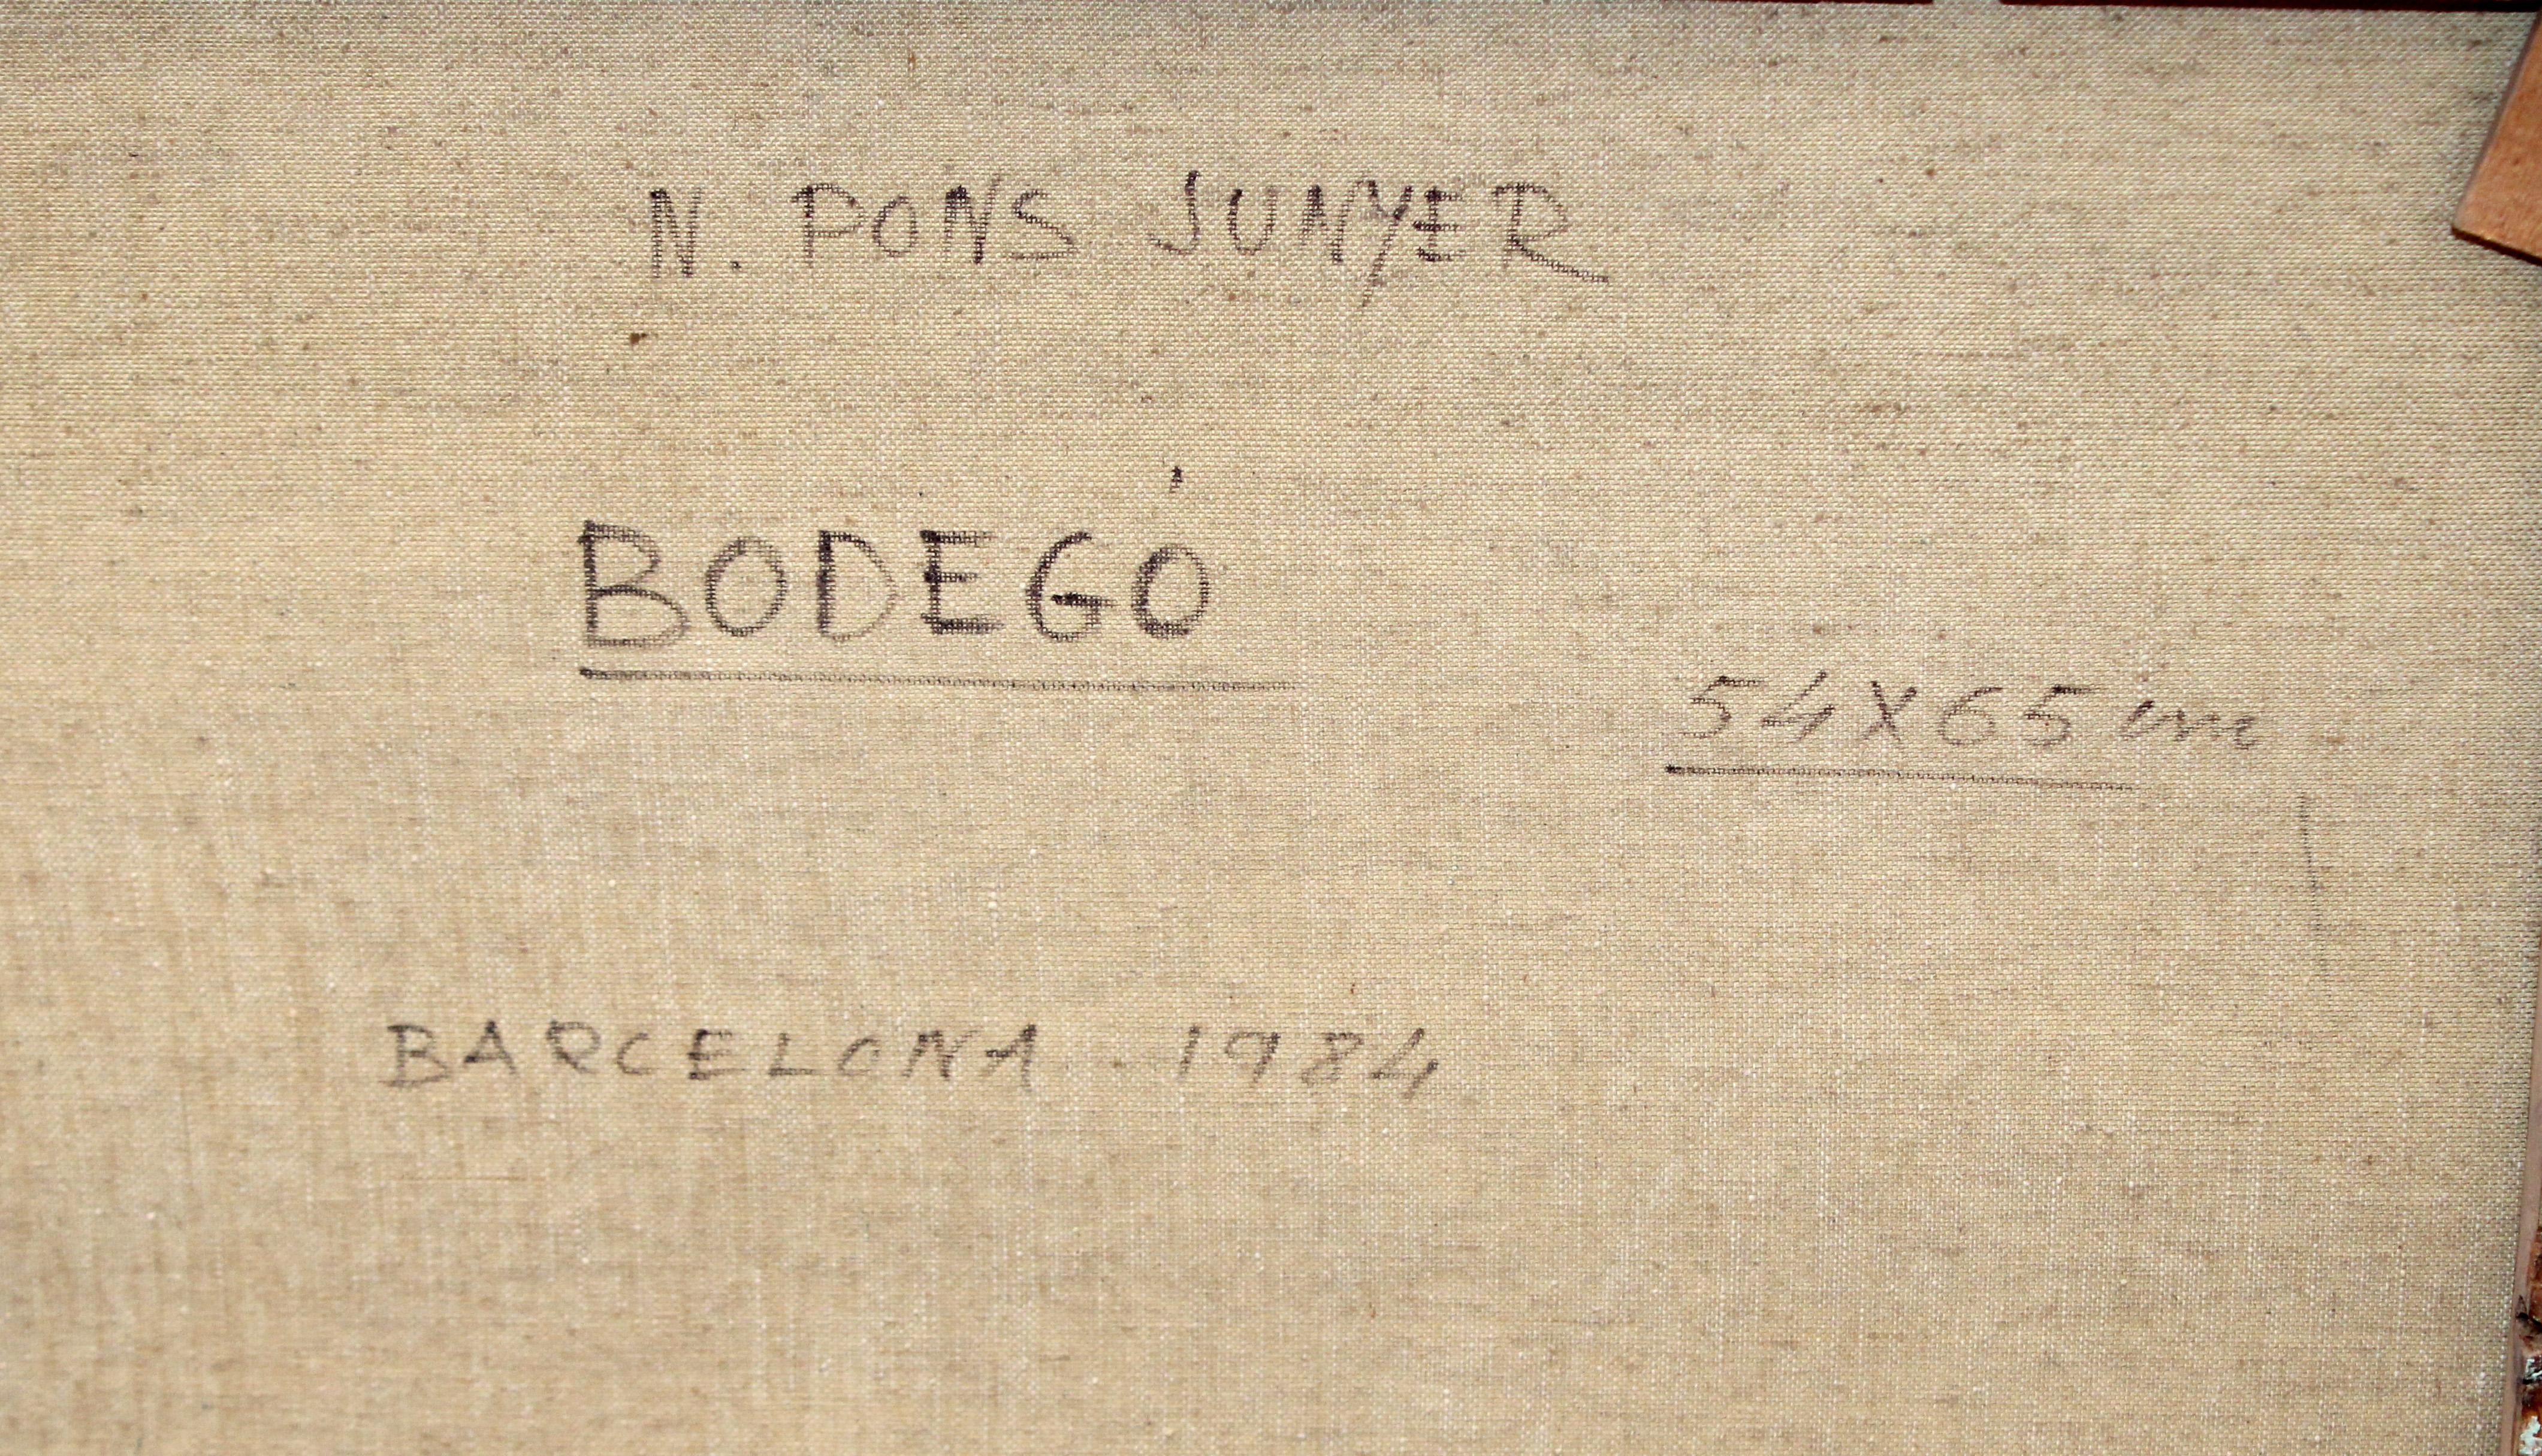 N. PONS JUNYER
BODEGÓ
54 X 65 cm
BARCELONA - 1984